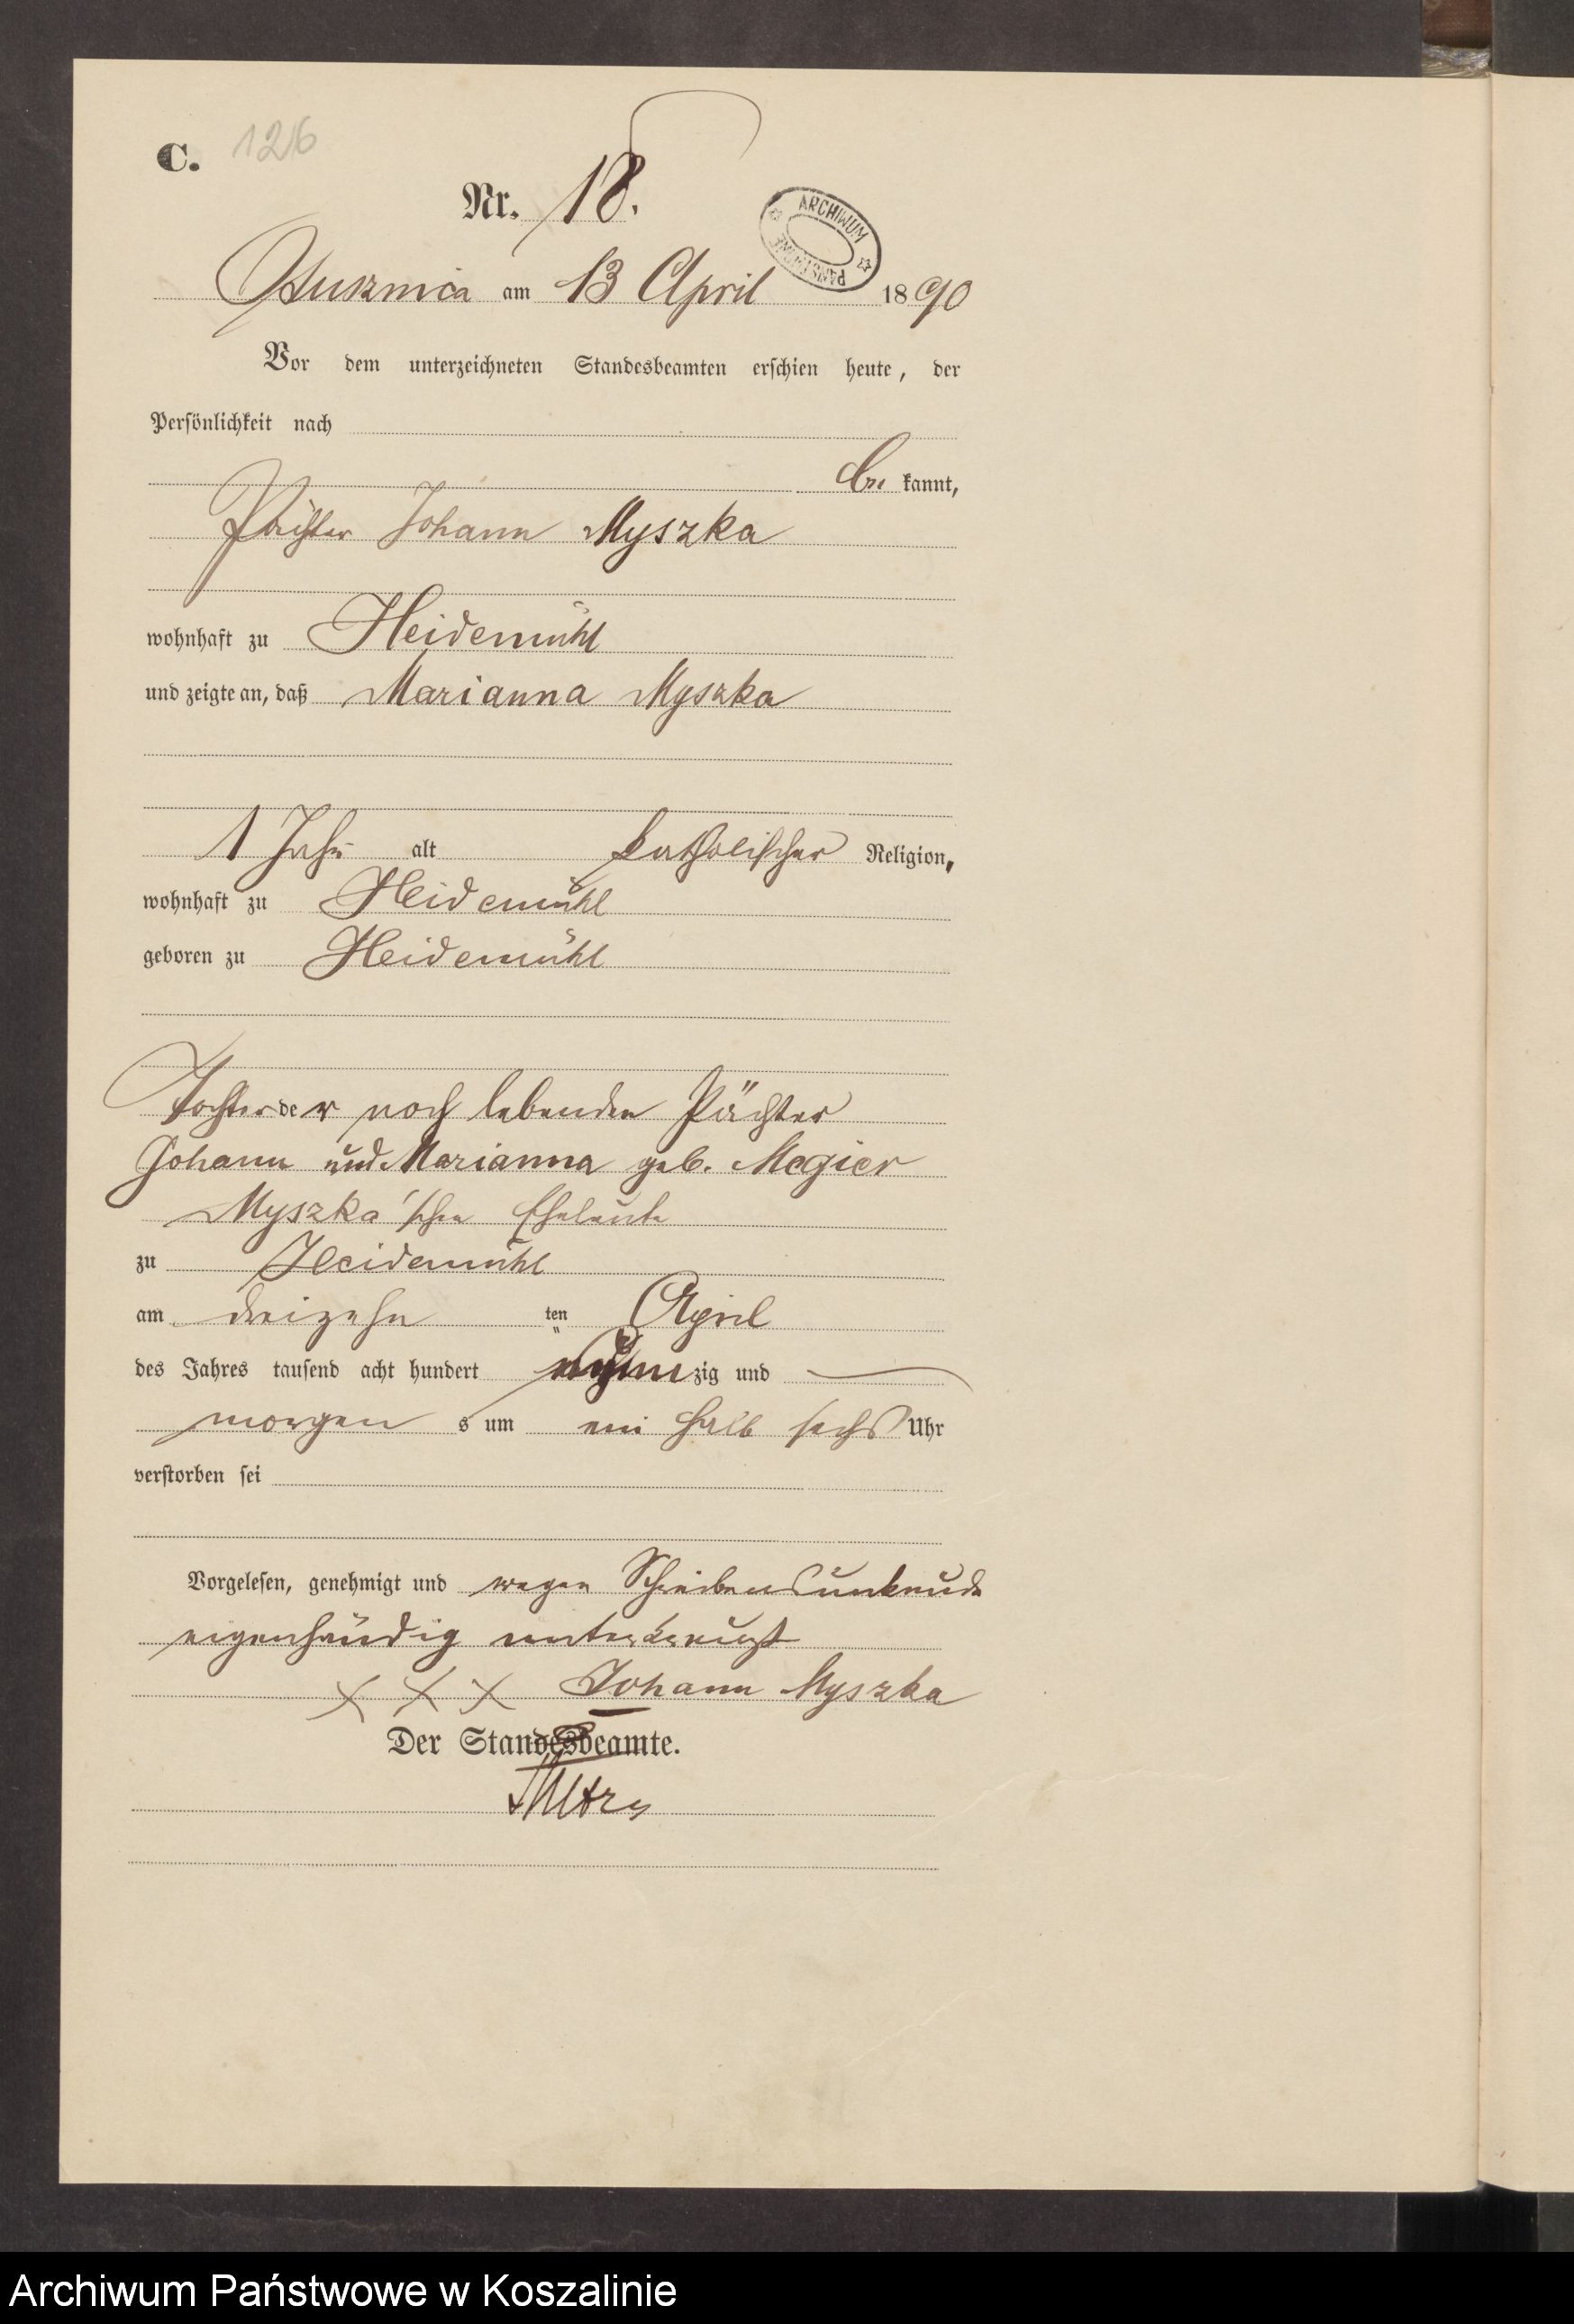 C. 126
Nr. 18.
ARCHIWUM PAŃSTWOWE
Ossusznica am 13 April 1890
Vor dem unterzeichneten Standesbeamten erschien heute, der
Persönlichkeit nach
be kannt,
Pächter Johann Myszka
wohnhaft zu Heidemühl
und zeigte an, daß Marianna Myszka
1 Jahr alt katholischer Religion,
wohnhaft zu Heidemühl
geboren zu Heidemühl
Tochter der noch lebenden Pächter
Johann und Marianna geb. Megier
Myszka'schen Eheleute
zu Heidemühl
am dreizehn ten April
des Jahres tausend acht hundert neunzig und
morgen s um ein halb sechs Uhr
verstorben sei
Vorgelesen, genehmigt und wegen Schreibensunkunde
eigenhändig unterkreuzt
X X X Johann Myszka
Der Standesbeamte.
Archiwum Państwowe w Koszalinie